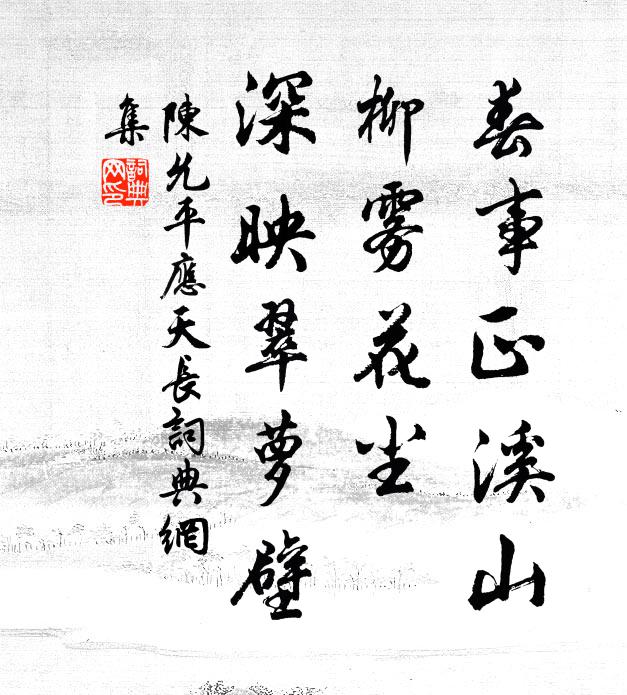 春事正溪山
柳雾花尘
深映翠萝壁
陳允平應天長詞典網
集
詞典
网印